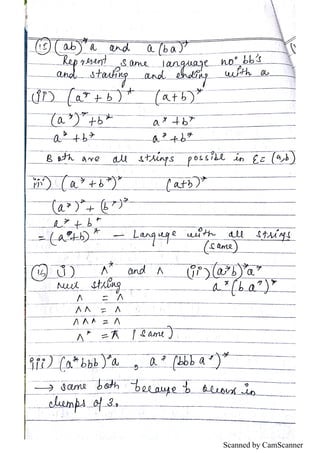 (15) (ab)*a and a(ba)*
Represent same language no bb's
and starting and ending with a
(ii) (a* + b)* (a+b)*
(a*)* + b* a* + b*
a* + b* a* + b*
Both are all strings possible in Σ = (a,b)
iii) (a* + b*)* (a+b)*
(a*)* + (b*)*
a* + b*
= (a+b)* — Language with all strings
(same)
(16) i) Λ* and Λ (ii) (a*b)*a*
null string a*(ba*)*
Λ = Λ
ΛΛ = Λ
ΛΛΛ = Λ
Λ* = Λ (same)
iii) (a*bbb)*a , a*(bbb a*)*
→ same both because b occur in
clumps of 3.
Scanned by CamScanner